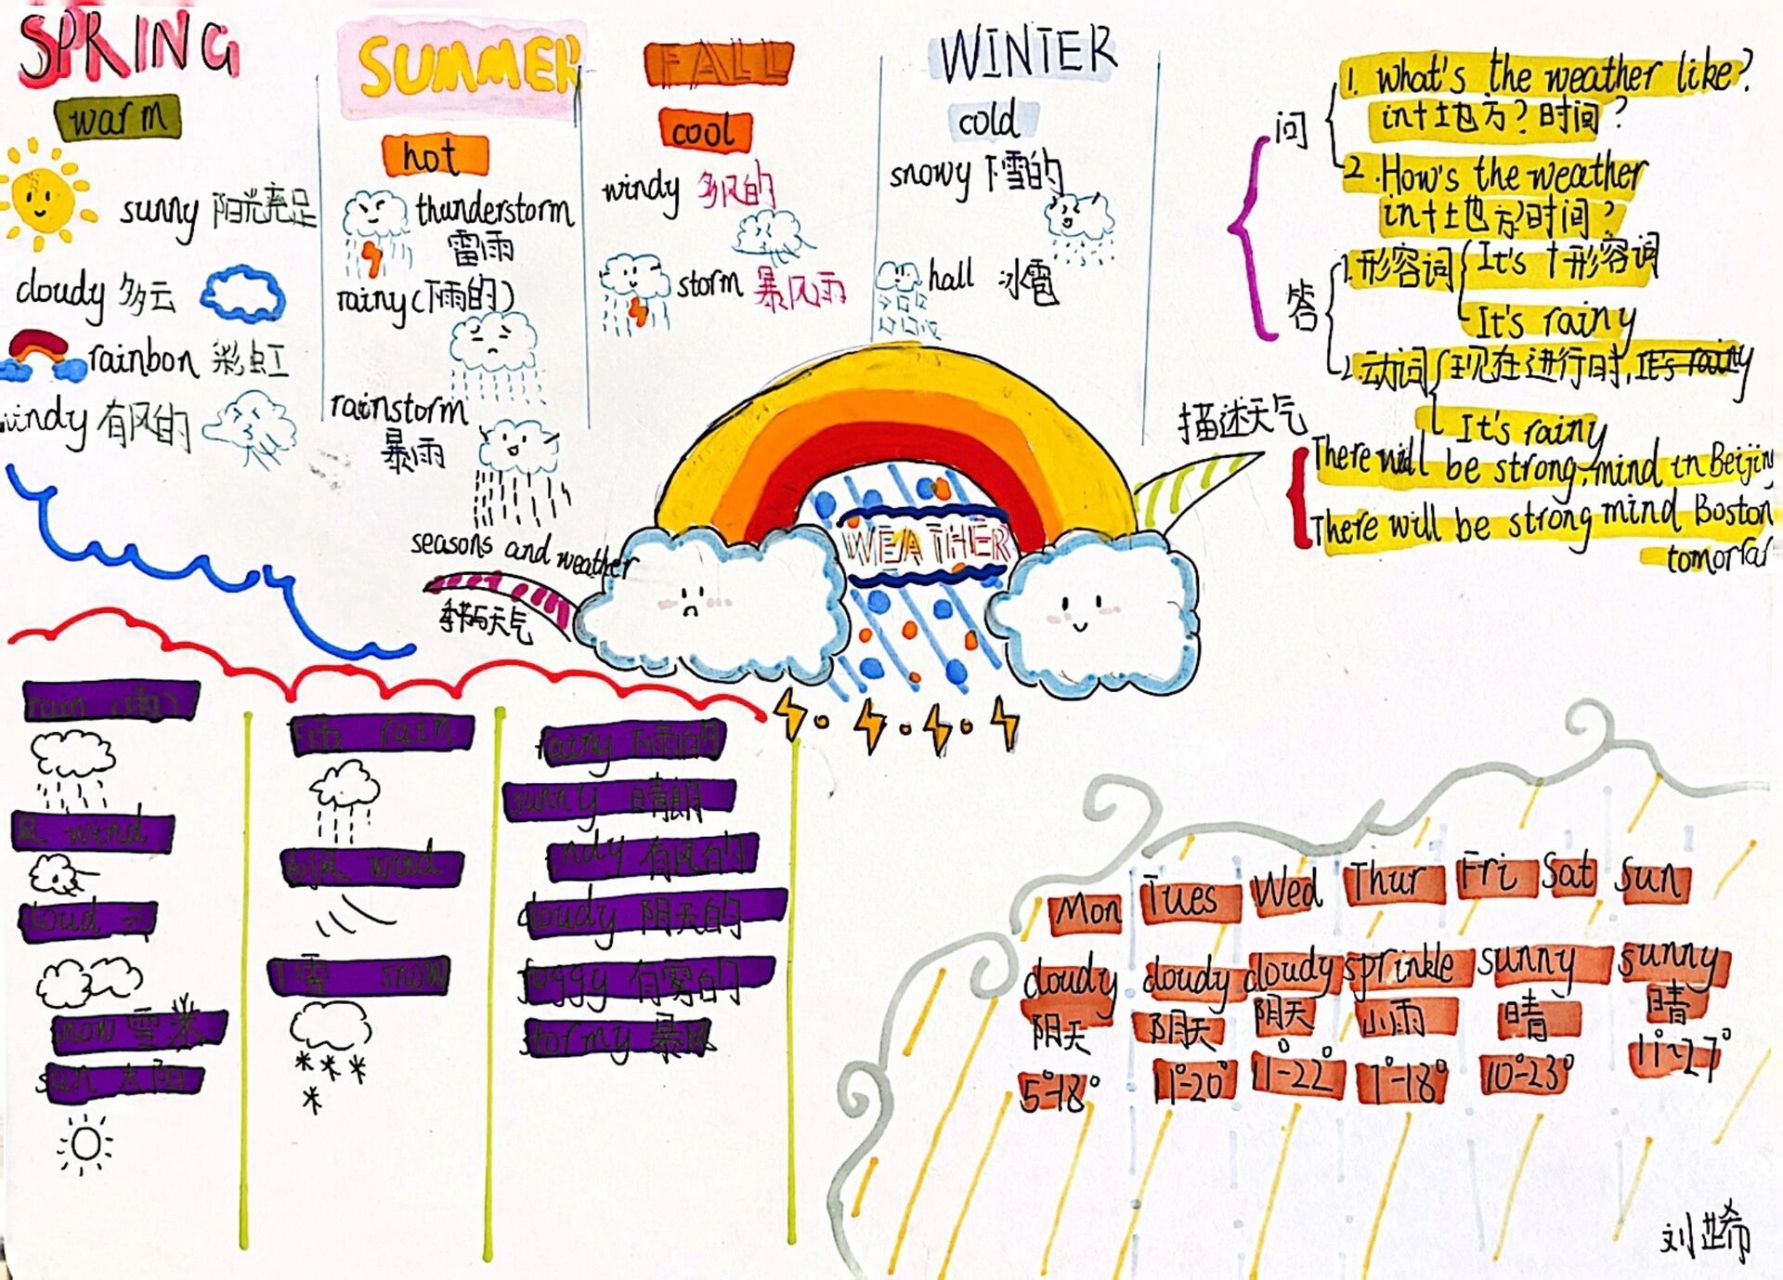 SPRING
warm
sunny 阳光充足
cloudy 多云
rainbon 彩虹
windy 有风的
SUMMER
hot
thunderstorm
雷雨
rainy(下雨的)
rainstorm
暴雨
FALL
cool
windy 多风的
storm 暴风雨
WINTER
cold
snowy 下雪的
hall 冰雹
问
1. what's the weather like?
in+地方?时间?
2. How's the weather
in+地方?时间?
答
1.形容词
It's +形容词
It's rainy
2.动词
现在进行时, It's rainy
It's rainy
描述天气
There will be strong mind in Beijing
There will be strong mind Boston
tomorrar
WEATHER
seasons and weather
季节与天气
rain (雨)
wind
loud 云
snow 雪
sun 太阳
rain
wind
雪 snow
rainy 下雨的
sunny 晴朗
ndy 有风的
cloudy 阴天的
foggy 有雾的
stormy 暴风
Mon Tues Wed Thur Fri Sat Sun
cloudy cloudy cloudy sprinkle sunny sunny
阴天 阴天 阴天 小雨 晴 晴
5°-18° 11°-20° 11°-22° 1°-18° 10°-23° 11°-27°
刘